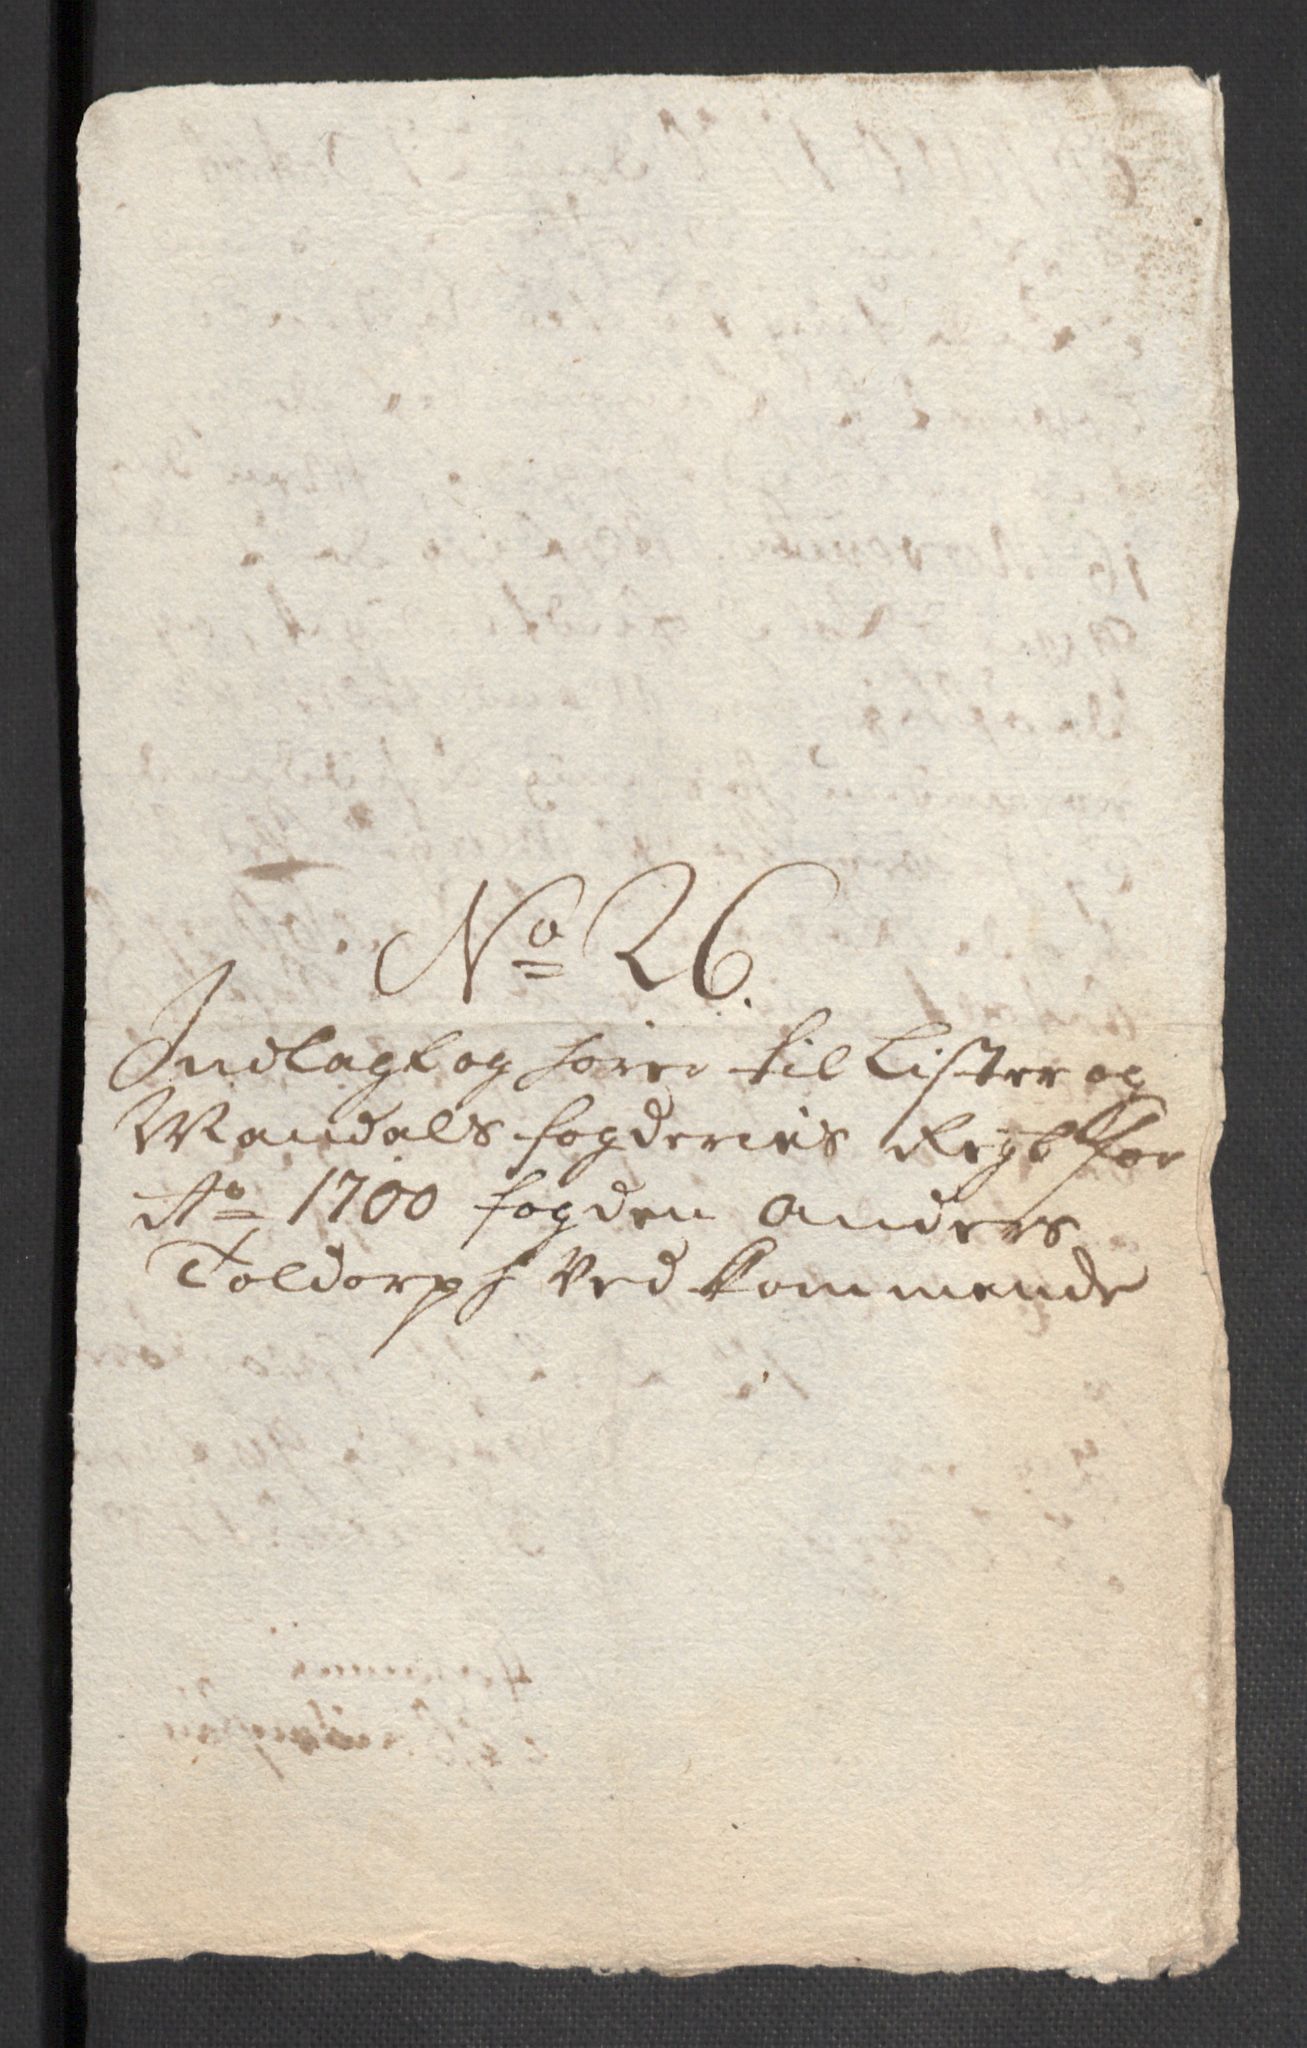 No 26.
Indlagt og hører til Lister og
Mandals fogderies Regsk for
Ao 1700 fogden Anders
Toldorph Ved kommende